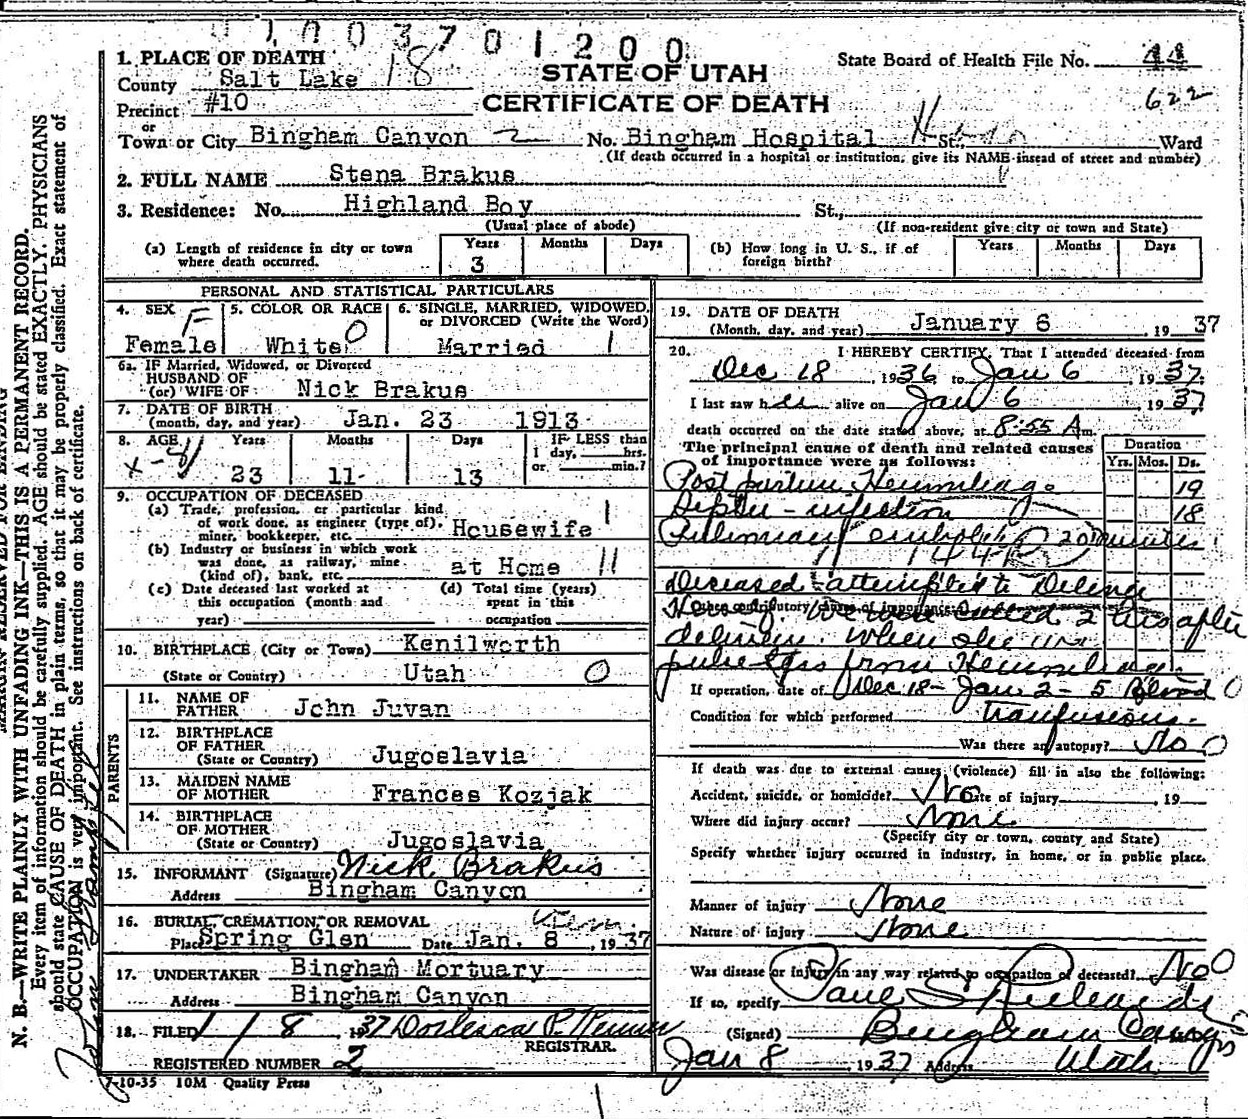 1003701200
1. PLACE OF DEATH
County Salt Lake 18
STATE OF UTAH
State Board of Health File No. 44
Precinct #10
CERTIFICATE OF DEATH
622
or
Town or City Bingham Canyon 2 No. Bingham Hospital St., Ward
(If death occurred in a hospital or institution, give its NAME insead of street and number)
2. FULL NAME Stena Brakus
3. Residence: No. Highland Boy St.,
(Usual place of abode) (If non-resident give city or town and State)
(a) Length of residence in city or town where death occurred. Years 3 Months Days
(b) How long in U. S., if of foreign birth? Years Months Days
PERSONAL AND STATISTICAL PARTICULARS
4. SEX F Female
5. COLOR OR RACE White 0
6. SINGLE, MARRIED, WIDOWED, or DIVORCED (Write the Word) Married 1
6a. IF Married, Widowed, or Divorced
HUSBAND OF
(or) WIFE OF Nick Brakus
7. DATE OF BIRTH
(month, day, and year) Jan. 23 1913
8. AGE Years 23 Months 11 Days 13
IF LESS than 1 day, hrs. or min.?
9. OCCUPATION OF DECEASED
(a) Trade, profession, or particular kind of work done, as engineer (type of), miner, bookkeeper, etc. Housewife 1
(b) Industry or business in which work was done, as railway, mine (kind of), bank, etc. at Home 11
(c) Date deceased last worked at this occupation (month and year)
(d) Total time (years) spent in this occupation
10. BIRTHPLACE (City or Town) Kenilworth
(State or Country) Utah 0
PARENTS
11. NAME OF FATHER John Juvan
12. BIRTHPLACE OF FATHER
(State or Country) Jugoslavia
13. MAIDEN NAME OF MOTHER Frances Kozjak
14. BIRTHPLACE OF MOTHER
(State or Country) Jugoslavia
15. INFORMANT (Signature) Nick Brakus
Address Bingham Canyon
16. BURIAL, CREMATION, OR REMOVAL
Place Spring Glen Date Jan. 8, 1937
17. UNDERTAKER Bingham Mortuary
Address Bingham Canyon
18. FILED 1/8 1937
REGISTRAR.
REGISTERED NUMBER 2
7-10-35 10M Quality Press
19. DATE OF DEATH
(Month, day, and year) January 6, 1937
20. I HEREBY CERTIFY, That I attended deceased from
Dec 18, 1936 to Jan 6 1937.
I last saw her alive on Jan 6 1937
death occurred on the date stated above, at 8:55 A m.
The principal cause of death and related causes of importance were as follows:
Duration
Yrs. Mos. Ds.
Post partum Hemorrhage 19
infection 18
Pulmonary embolis 20 minutes
Deceased attempted to Deliver
Other contributory causes of importance:
Herself. We were called 2 hrs after
delivery. When she was
pulseless from Hemorrhage.
If operation, date of Dec 18 - Jan 2 - 5 Blood 0
Condition for which performed Tranfusions.
Was there an autopsy? No 0
If death was due to external causes (violence) fill in also the following:
Accident, suicide, or homicide? No Date of injury , 19
Where did injury occur? None
(Specify city or town, county and State)
Specify whether injury occurred in industry, in home, or in public place.
Manner of injury None
Nature of injury None
Was disease or injury in any way related to occupation of deceased? No 0
If so, specify Paul S Richards
(Signed) Bingham Canyon
Jan 8, 1937 Address Utah
MARGIN RESERVED FOR BINDING
N. B.—WRITE PLAINLY WITH UNFADING INK—THIS IS A PERMANENT RECORD.
Every item of information should be carefully supplied. AGE should be stated EXACTLY. PHYSICIANS
should state CAUSE OF DEATH in plain terms, so that it may be properly classified. Exact statement of
OCCUPATION is very important. See instructions on back of certificate.